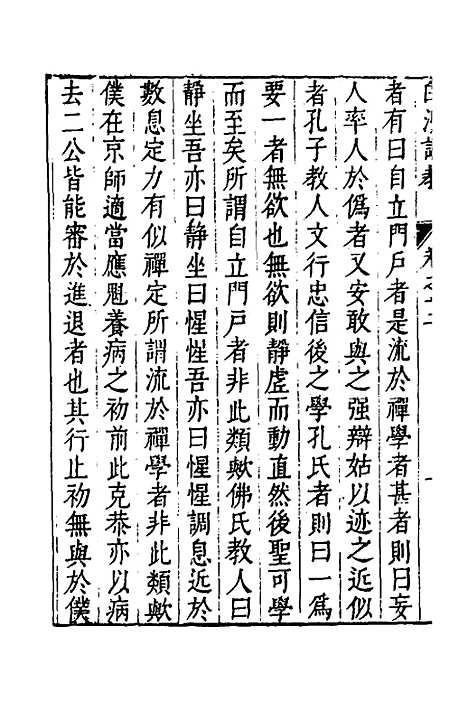 者有曰自立門戶者是流於禪學者甚者則曰妄
人率人於僞者又安敢與之强辯姑以迹之近似
者孔子教人文行忠信後之學孔氏者則曰一爲
要一者無欲也無欲則靜虛而動直然後聖可學
而至矣所謂自立門戶者非此類歟佛氏教人曰
靜坐吾亦曰靜坐曰惺惺吾亦曰惺惺調息近於
數息定力有似禪定所謂流於禪學者非此類歟
僕在京師適當應魁養病之初前此克恭亦以病
去二公皆能審於進退者也其行止初無與於僕